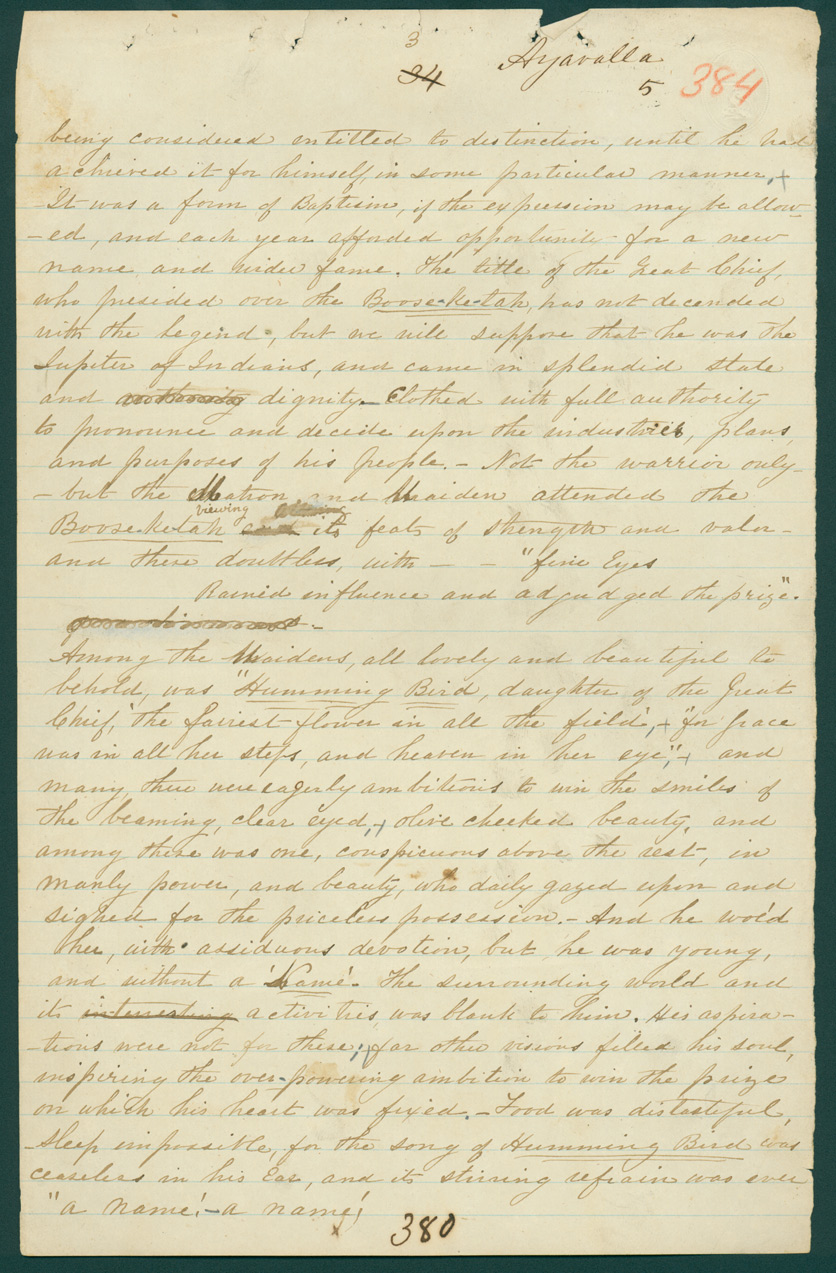 3
34 Ayavalla
5 384
being considered entitled to distinction, until he had
achieved it for himself, in some particular manner,+
-It was a form of Baptism, if the expression may be allow-
-ed, and each year afforded opportunity for a new
name and wider fame. The title of the Great Chief,
who presided over the Boose-ke-tah, has not decended
with the Legend, but we will suppose that he was the
Jupiter of Indians, and came in splendid state
and dignity.- Clothed with full authority
to pronounce and decide upon the industries, plans,
and purposes of his people.- Not the warrior only-
- but the Matron and Maiden attended the
viewing
Boose-ketah its feats of strength and valor-
and there doubtless, with - - "fine Eyes
Rained influence and adjudged the prize".
Among the Maidens, all lovely and beautiful to
behold, was "Humming Bird, daughter of the Great
Chief,' the fairest flower in all the field',+ "for Grace
was in all her steps, and heaven in her eye",+ and
many, there were eagerly ambitious to win the smiles of
the beaming, clear eyed,+ olive cheeked beauty, and
among these was one, conspicuous above the rest, in
manly power, and beauty, who daily gazed upon and
sighed for the priceless possession.- And he woo'd
her, with assiduous devotion, but, he was young,
and without a 'Name'. The surrounding world and
its interesting activities, was blank to him. His aspira-
-tions were not for these; far other visions filled his soul,
inspiring the over-powering ambition to win the prize
on which his heart was fixed.- Food was distasteful,
sleep impossible, for the song of Humming Bird was
ceaseless in his Ear, and its stirring refrain was ever
"a name!-a name!
380